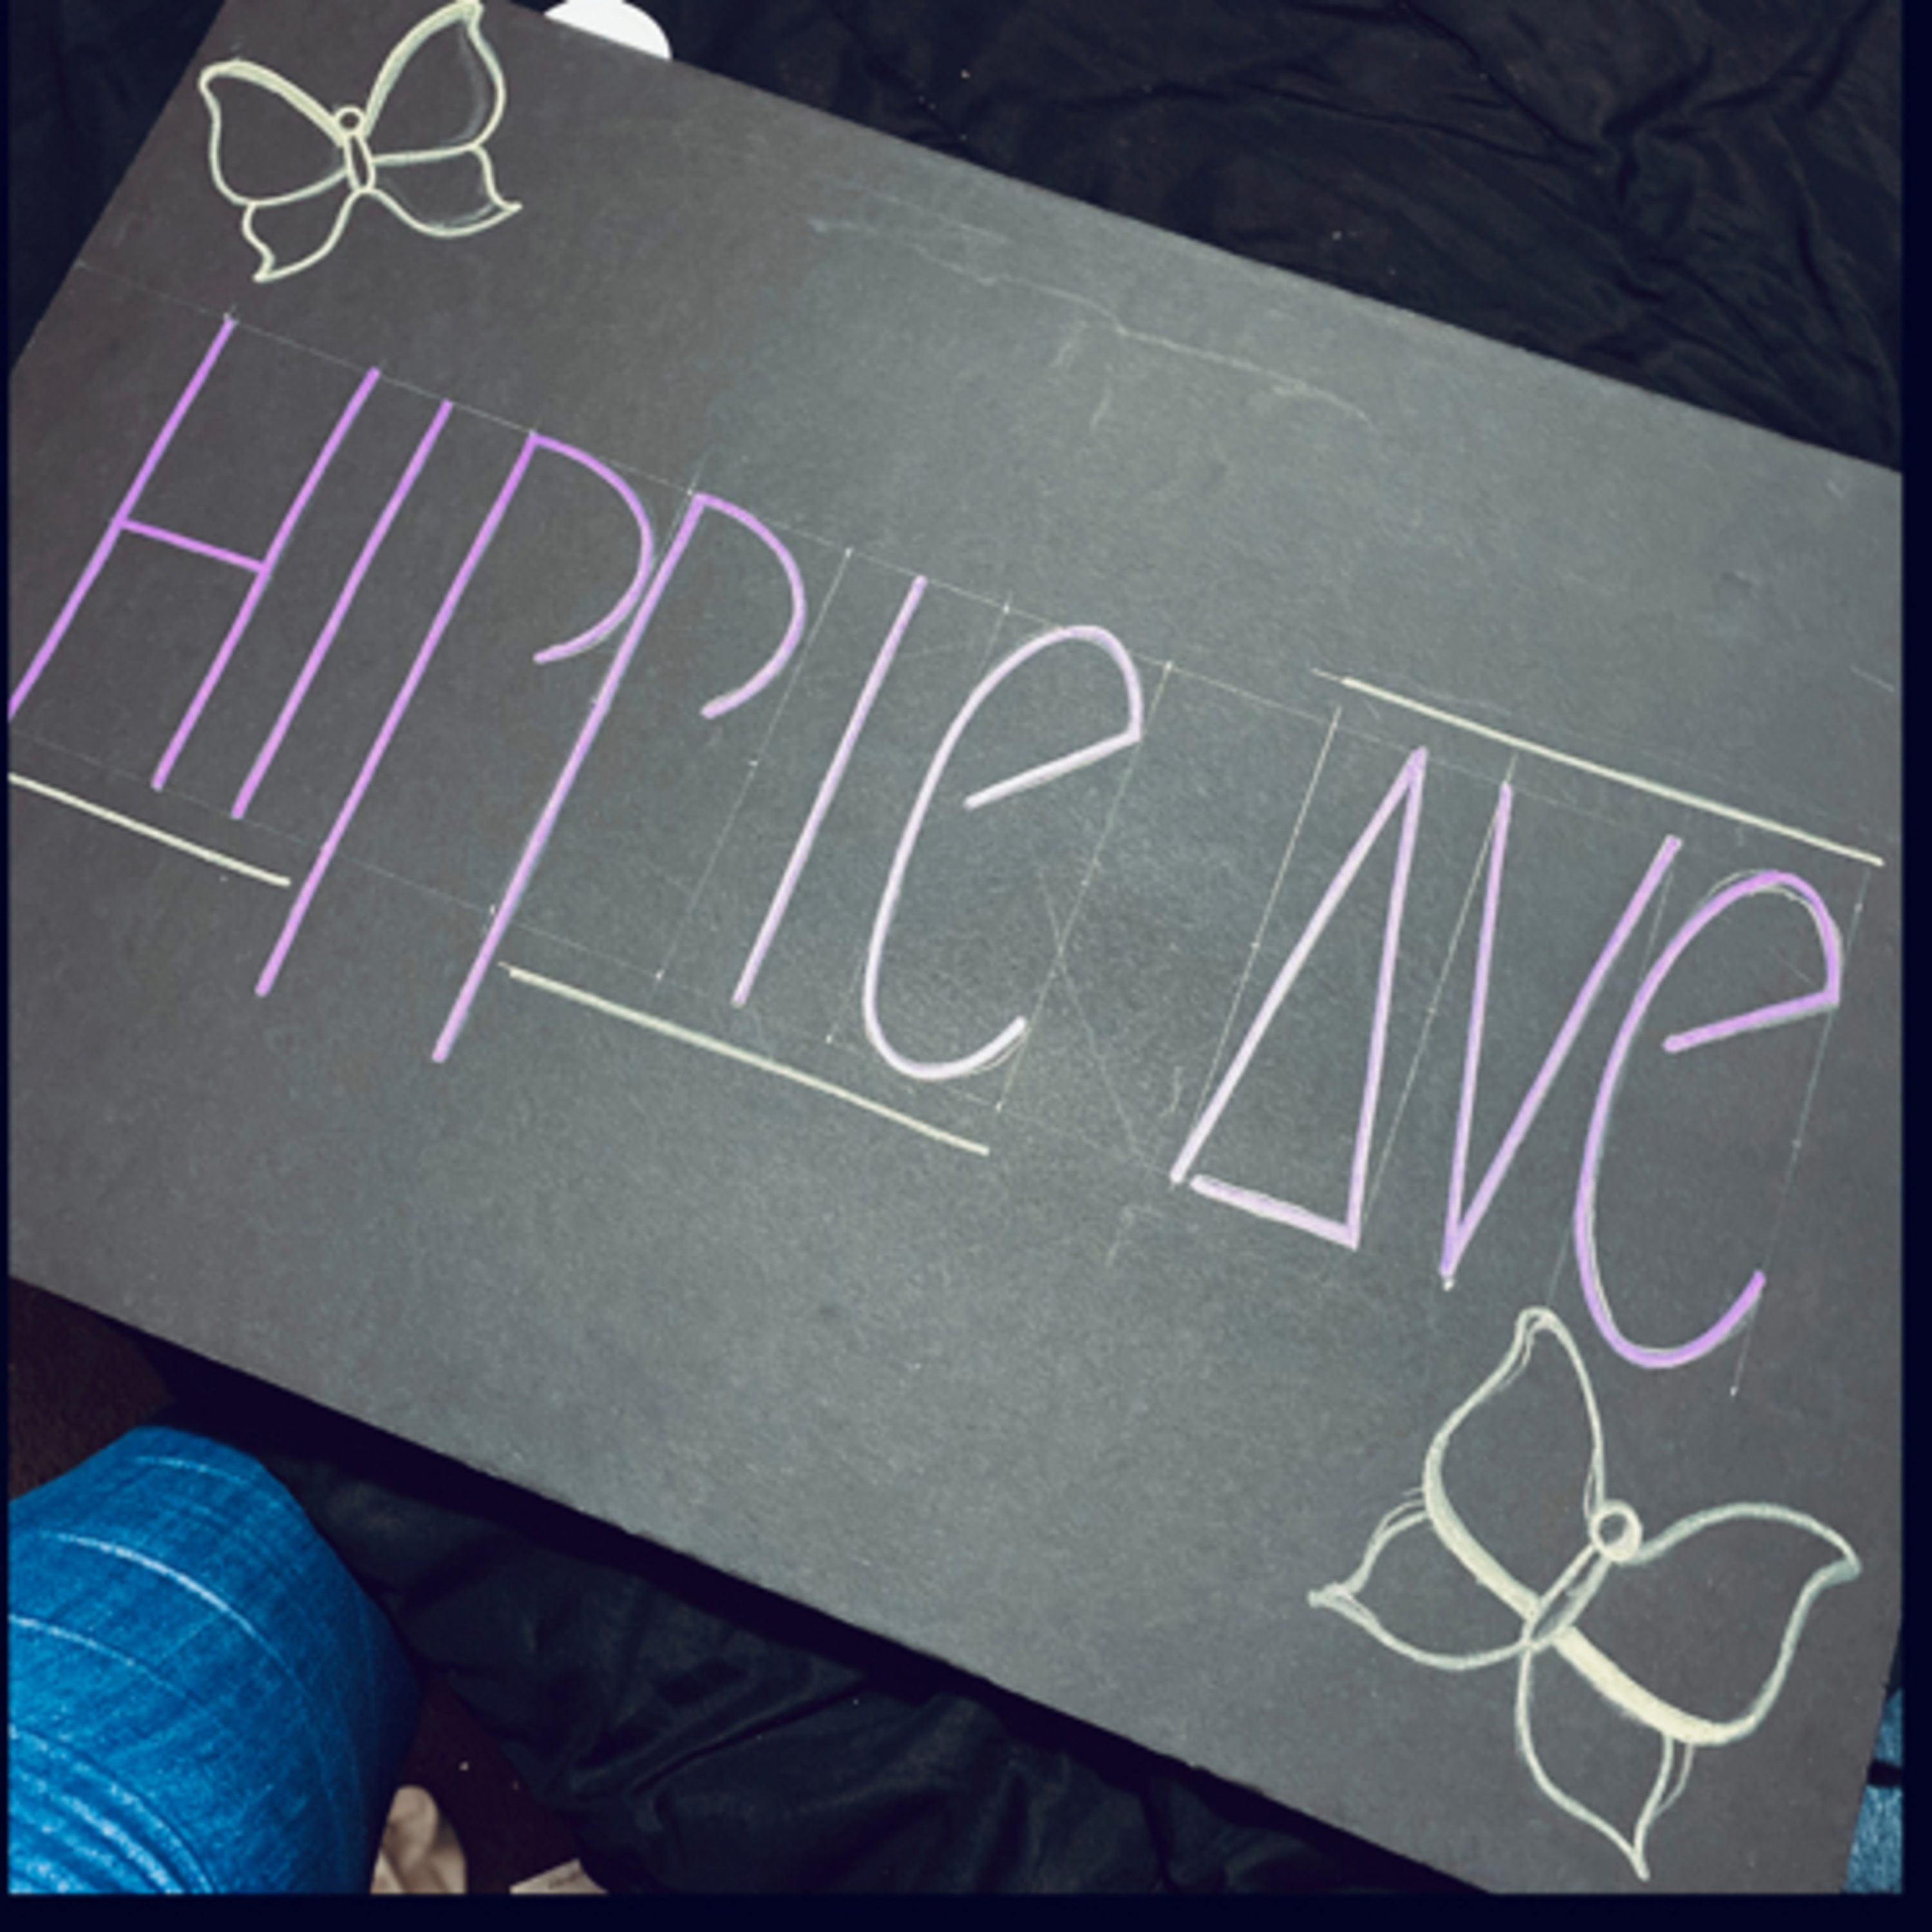 HIPPIE AVE